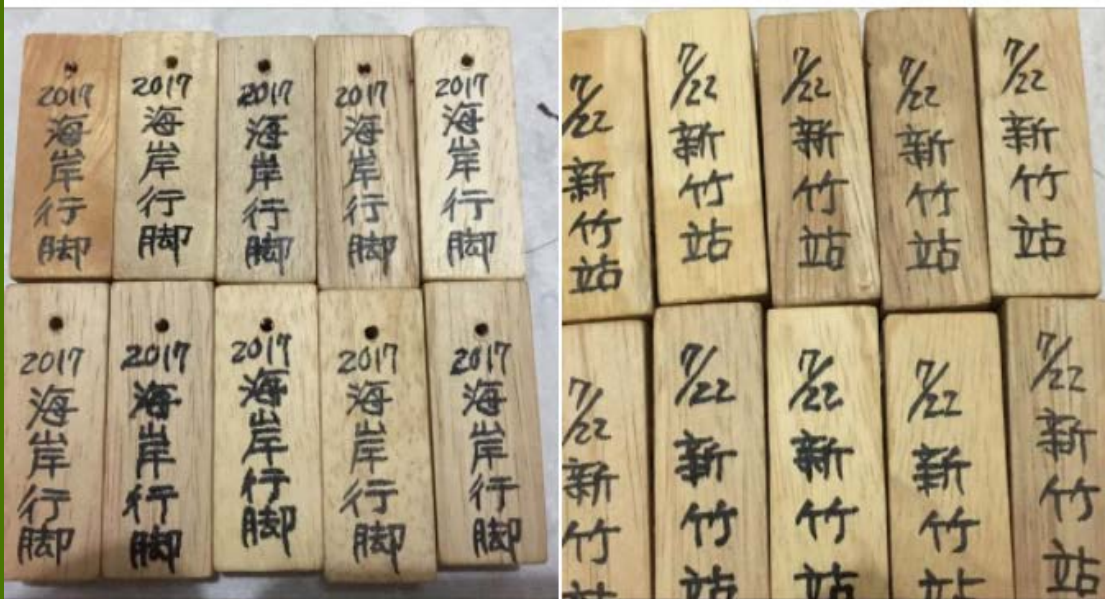 2017
海岸行脚
2017
海岸行脚
2017
海岸行脚
2017
海岸行脚
2017
海岸行脚
2017
海岸行脚
2017
海岸行脚
2017
海岸行脚
2017
海岸行脚
2017
海岸行脚
7/22
新竹站
7/22
新竹站
7/22
新竹站
7/22
新竹站
7/22
新竹站
7/22
新竹站
7/22
新竹站
7/22
新竹站
7/22
新竹站
7/22
新竹站